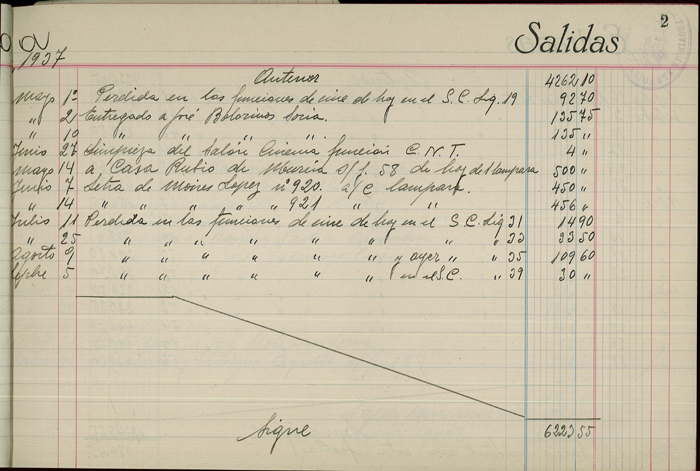 2
Salidas
1937
Anterior 4262 10
Mayo 1º Perdida en las funciones de cine de hoy en el S.C. Liq. 19 92 70
" 21 Entregado a José Bolarines Soria. 135 75
" 10 " " " " 135 "
Junio 27 Limpieza del Salón Cinema función C.N.T. 4 "
Mayo 14 a Casa Rubio de Murcia s/f. 58 de hoy de 1 lampara 500 "
Junio 7 Letra de Moises Lopez nº 920. a/c lampara. 450 "
" 14 " " " " " 921 " " 456 "
Julio 11 Perdida en las funciones de cine de hoy en el S.C. Liq 31 14 90
" 25 " " " " " " " " " 33 33 50
Agosto 9 " " " " " " ayer " " " 35 109 60
Sepbre 5 " " " " " " en el S.C. " 39 30 "
Sigue 6223 55